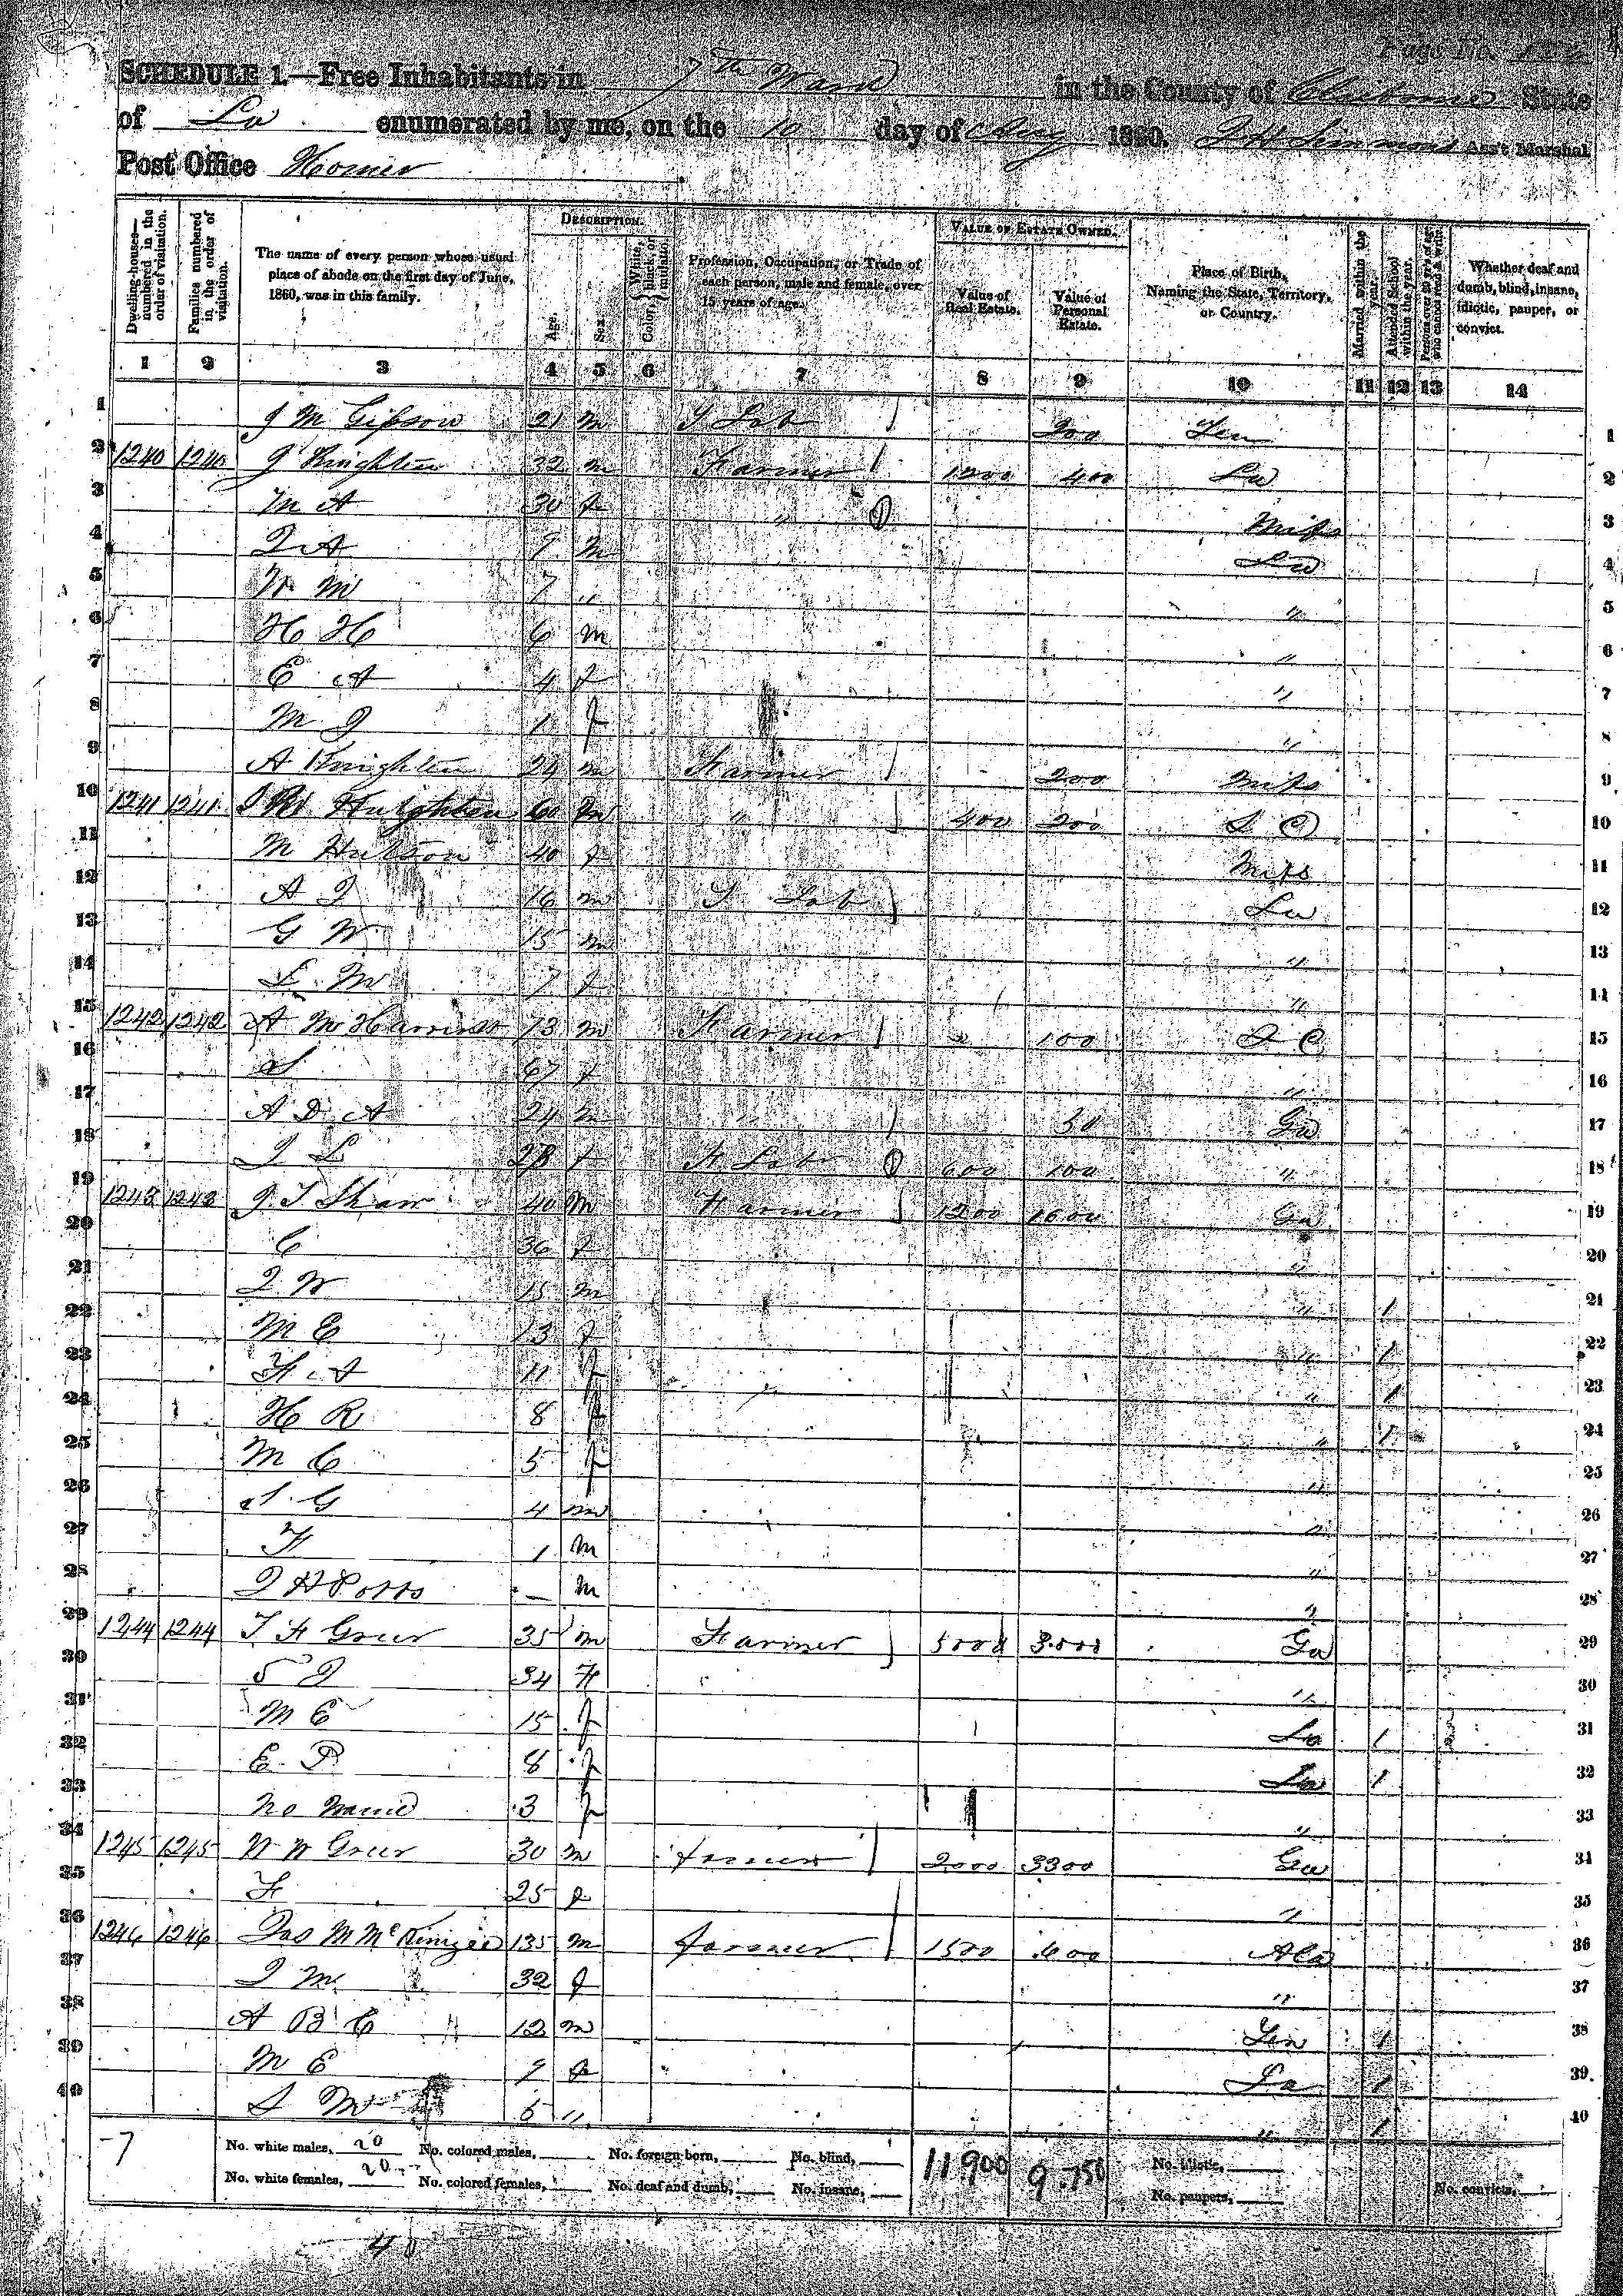 Page No.
SCHEDULE 1.—Free Inhabitants in 7th Ward in the County of Claiborne State
of La enumerated by me, on the 10 day of Aug 1860. Simmons Ass't Marshal
Post Office Homer
Dwelling-houses—numbered in the order of visitation.
Families numbered in the order of visitation.
The name of every person whose usual place of abode on the first day of June, 1860, was in this family.
DESCRIPTION.
Age.
Sex.
Color, White, black, or mulatto.
Profession, Occupation, or Trade of each person, male and female, over 15 years of age.
VALUE OF ESTATE OWNED.
Value of Real Estate.
Value of Personal Estate.
Place of Birth, Naming the State, Territory, or Country.
Married within the year.
Attended School within the year.
Persons over 20 y'rs of age who cannot read & write.
Whether deaf and dumb, blind, insane, idiotic, pauper, or convict.
1 2 3 4 5 6 7 8 9 10 11 12 13 14
1 J M Gibson 21 m F Lab 200 Ten 1
2 1240 1240 J Knighten 32 m Farmer 1200 400 La 2
3 M A 30 f " Miss 3
4 J A 9 m La 4
5 W M 7 " " 5
6 H H 6 m " 6
7 E A 4 f " 7
8 M J 1 f " 8
9 A Knighten 24 m Farmer 200 Miss 9
10 1241 1241 60 m " 400 200 S C 10
11 M Hutson 40 f Miss 11
12 A J 16 m F Lab La 12
13 G W 15 m " 13
14 L M 7 f " 14
15 1242 1242 A M 73 m Farmer 100 S C 15
16 S 67 f " 16
17 A D A 24 m " 50 Ga 17
18 J L 28 f F Lab 600 100 " 18
19 1243 1243 J T Shaw 40 m Farmer 1200 1600 Ga 19
20 C 36 f " 20
21 J W 15 m " 1 21
22 M E 13 f " 1 22
23 F A 11 f " 1 23
24 H R 8 f " 1 24
25 M C 5 f " 25
26 S G 4 m " 26
27 F 1 m " 27
28 J H Potts — m " 28
29 1244 1244 T F Greer 35 m Farmer 5000 3000 Ga 29
30 S J 34 F " 30
31 M E 15 f La 1 31
32 E P 8 f La 1 32
33 No Name 3 f " 33
34 1245 1245 W W Greer 30 m farmer 2000 3300 Ga 34
35 F 25 f " 35
36 1246 1246 Jas M 35 m farmer 1500 600 Ala 36
37 J M 32 f " 37
38 A B C 12 m Ten 1 38
39 M E 9 f La 1 39
40 S M 5 " " 1 40
-7 No. white males, 20 No. colored males, No. foreign born, No. blind, 11900 9.750 No. idiotic,
No. white females, 20 No. colored females, No. deaf and dumb, No. insane, No. paupers, No. convicts,
40